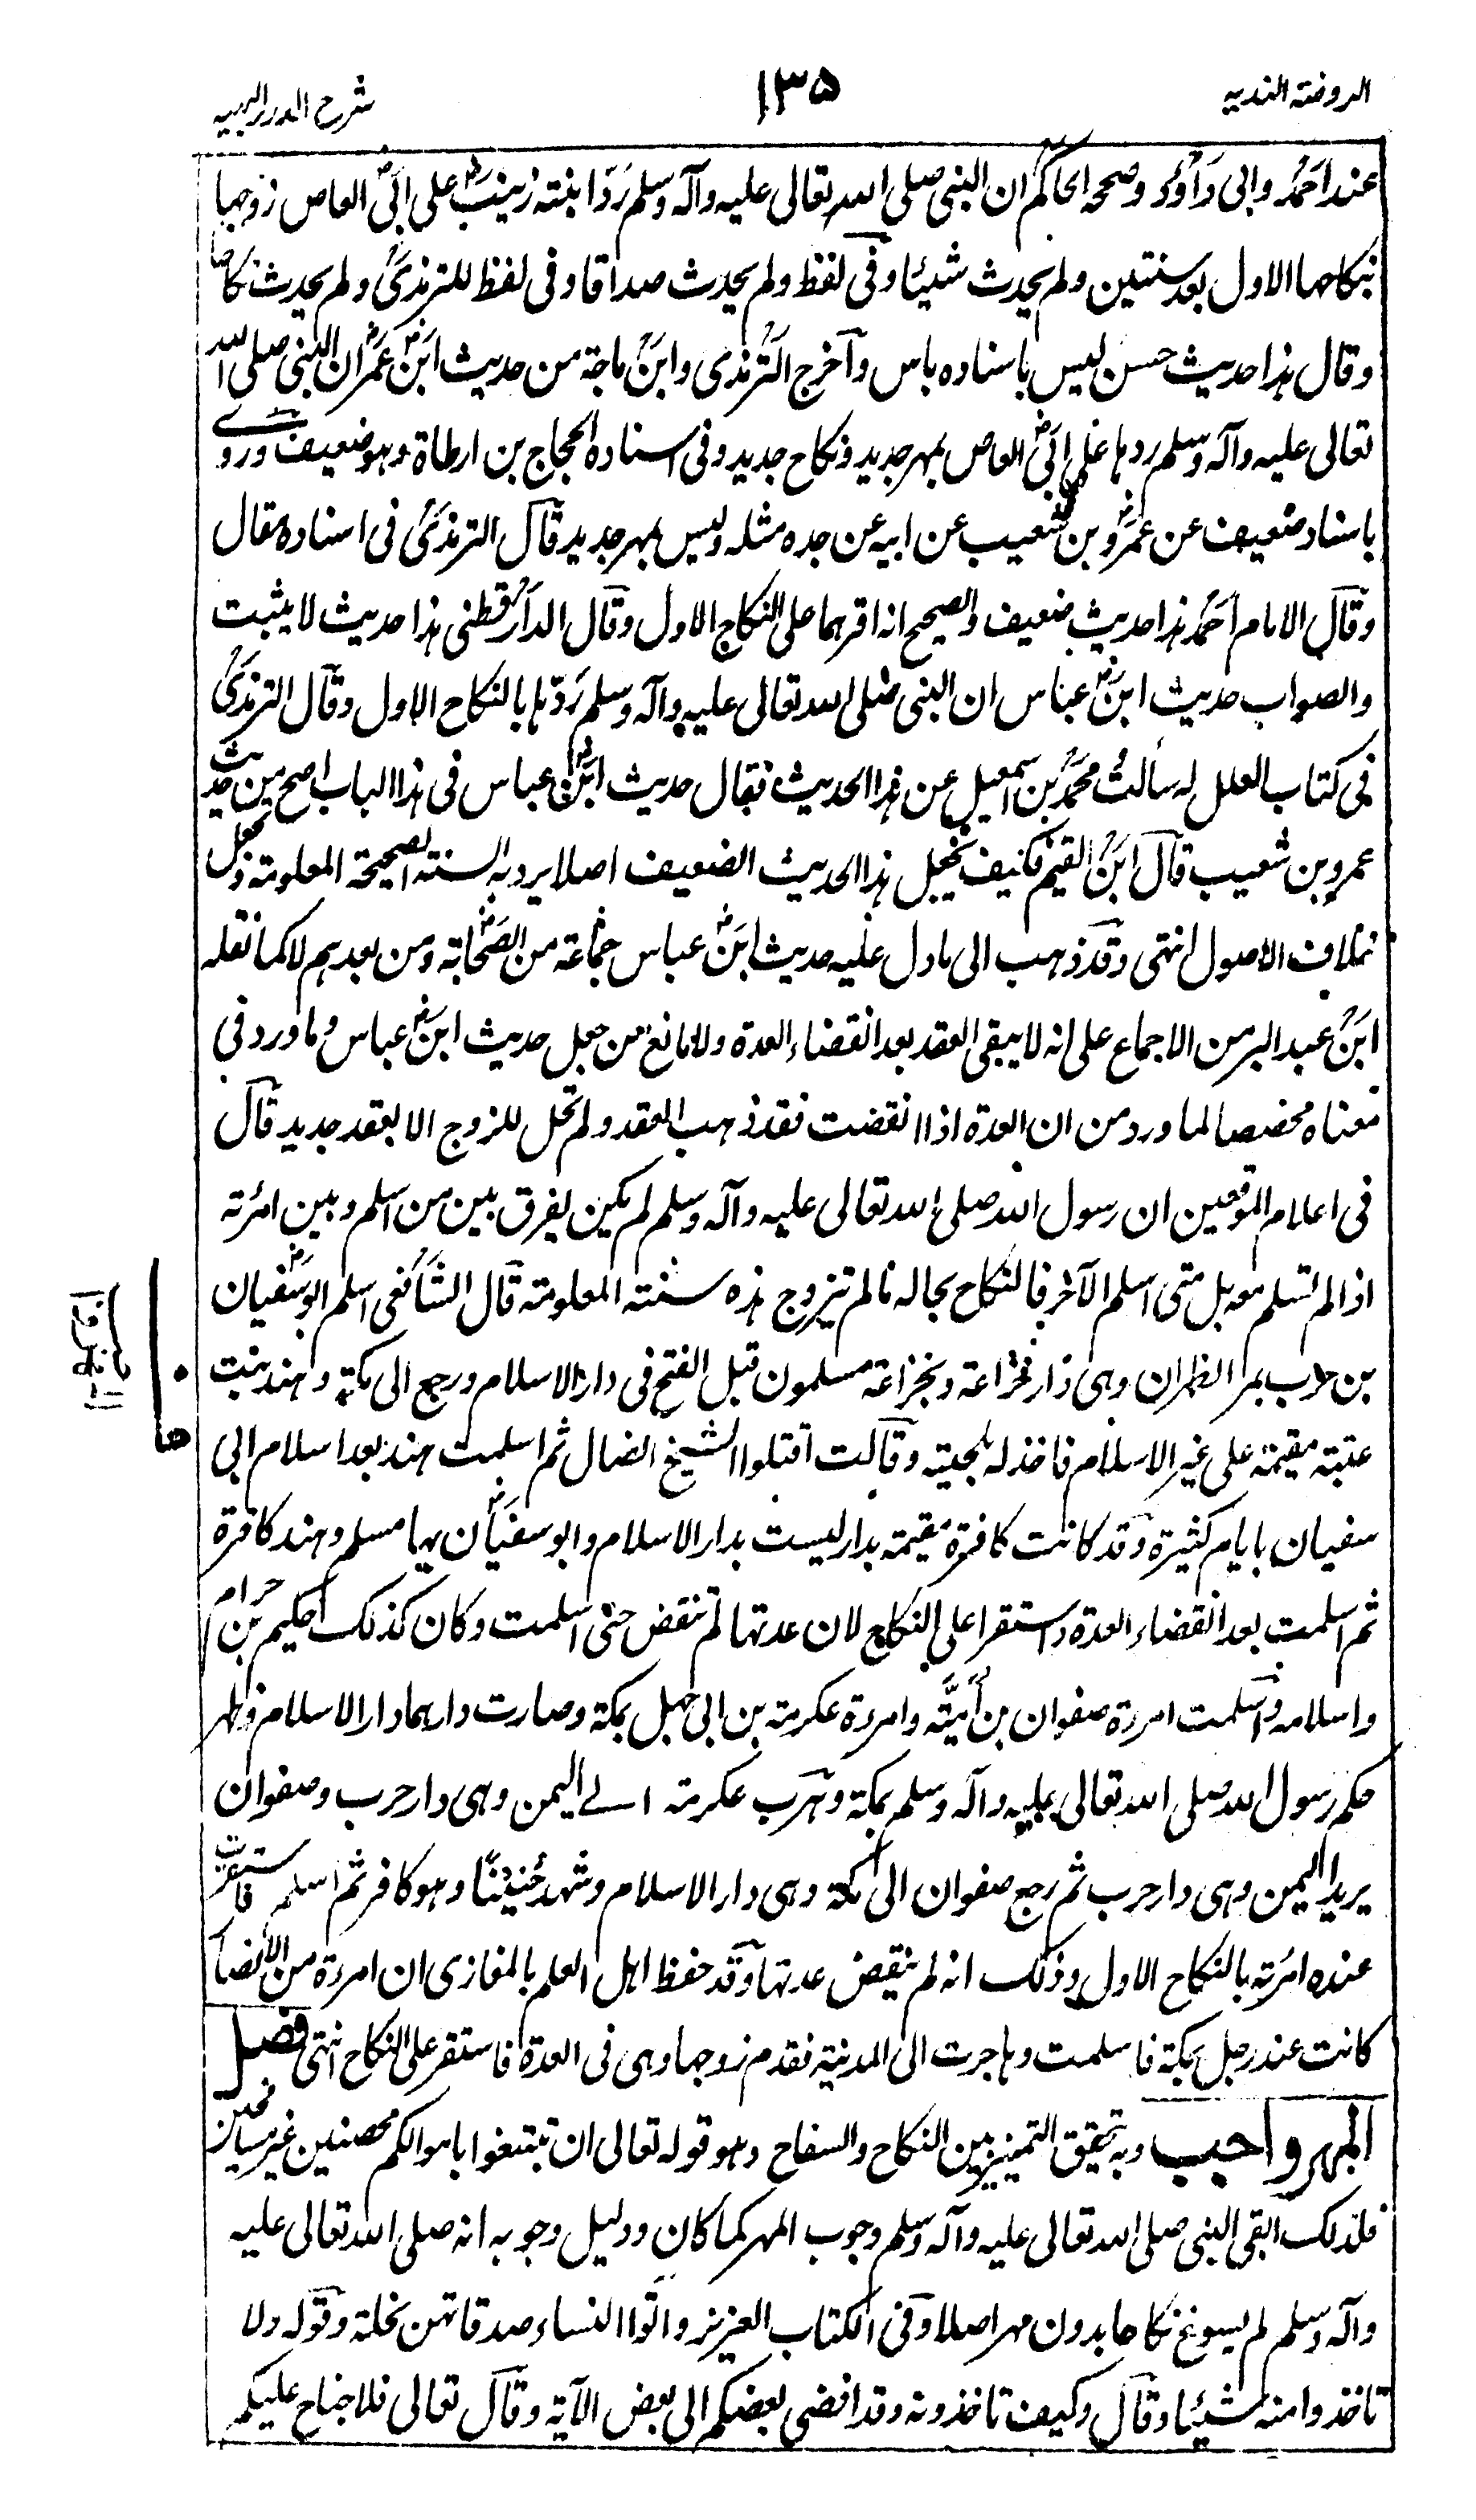 الروضة الندية
۱۳۵
شرح الدرر البهية
عند احمد وابى داؤد وصححه الحاكم ان النبى صلى الله تعالى عليه وآله وسلم رد ابنته زينب على ابى العاص زوجها
بنكاحها الاول بعد سنتين ولم يحدث شيئا وفى لفظ ولم يحدث صداقا وفى لفظ للترمذى ولم يحدث نكاحا
وقال هذا حديث حسن ليس باسناده باس وآخرج الترمذى وابن ماجة من حديث ابن عمر ان النبى صلى الله
تعالى عليه وآله وسلم ردها على ابى العاص بمهر جديد ونكاح جديد وفى اسناده الحجاج بن ارطاة وهو ضعيف وروے
باسناد ضعيف عن عمرو بن شعيب عن ابيه عن جده مثله وليس بمهر جديد قال الترمذى فى اسناده مقال
وقال الامام احمد هذا حديث ضعيف والصحيح انه اقرهما على النكاح الاول وقال الدارقطنى هذا حديث لا يثبت
والصواب حديث ابن عباس ان النبى صلى الله تعالى عليه وآله وسلم ردها بالنكاح الاول وقال الترمذى
فى كتاب العلل له سألت محمد بن اسمعيل عن هذا الحديث فقال حديث ابن عباس فى هذا الباب اصح من حديث
عمرو بن شعيب قال ابن القيم فكيف يجعل هذا الحديث الضعيف اصلا يرد به السنة الصحيحة المعلومة ويجعل
خلاف الاصول انتهى وقد ذهب الى ما دل عليه حديث ابن عباس جماعة من الصحابة ومن بعدهم لا كما نقله
ابن عبد البر من الاجماع على انه لا يبقى العقد بعد انقضاء العدة ولا مانع من جعل حديث ابن عباس وما ورد فى
معناه مخصصا لما ورد من ان العدة اذا انقضت فقد ذهب العقد ولم تحل للزوج الا بعقد جديد قال
فى اعلام الموقعين ان رسول الله صلى الله تعالى عليه وآله وسلم لم يكن يفرق بين من اسلم وبين امرئته
اذا لم تسلم معه بل متى اسلم الآخر فالنكاح بحاله ما لم تتزوج هذه سنته المعلومة قال الشافعى اسلم ابو سفيان
بن حرب بمر الظهران وهى دار خزاعة وبخزاعة مسلمون قبل الفتح فى دار الاسلام ورجع الى مكة وهند بنت
عتبة مقيمة على غير الاسلام فاخذت بلحيته وقالت اقتلوا الشيخ الضال ثم اسلمت هند بعد اسلام ابى
سفيان بايام كثيرة وقد كانت كافرة مقيمة بدار ليست بدار الاسلام وابو سفيان بها مسلم وهند كافرة
ثم اسلمت بعد انقضاء العدة واستقرا على النكاح لان عدتها لم تنقض حتى اسلمت وكان كذلك حكيم بن حزام
واسلامه واسلمت امرءة صفوان بن أمية وامرءة عكرمة بن ابى جهل بمكة وصارت دارهما دار الاسلام وظهر
حكم رسول الله صلى الله تعالى عليه وآله وسلم بمكة وهرب عكرمة الے اليمن وهى دار حرب وصفوان
يريد اليمن وهى دار حرب ثم رجع صفوان الى مكة وهى دار الاسلام وشهد حنينا وهو كافر ثم اسلم فاستقرت
عنده امرئته بالنكاح الاول وذلك انه لم ينقض عدتها وقد حفظ اهل العلم بالمغازى ان امرءة من الانصار
كانت عند رجل بمكة فاسلمت وهاجرت الى المدينة فقدم زوجها وهى فى العدة فاستقر على النكاح انتهى فصل
المهر واجب وبه تحقيق التمييز بين النكاح والسفاح وهو قوله تعالى ان تبتغوا باموالكم محصنين غير مسافحين
فلذلك ابقى النبى صلى الله تعالى عليه وآله وسلم وجوب المهر كما كان ودليل وجوبه انه صلى الله تعالى عليه
وآله وسلم لم يسوغ نكاحا بدون مهر اصلا وفى الكتاب العزيز واتوا النساء صدقاتهن نحلة وقوله ولا
تاخذوا منه شيئا وقال وكيف تاخذونه وقد افضى بعضكم الى بعض الآية وقال تعالى فلا جناح عليكم